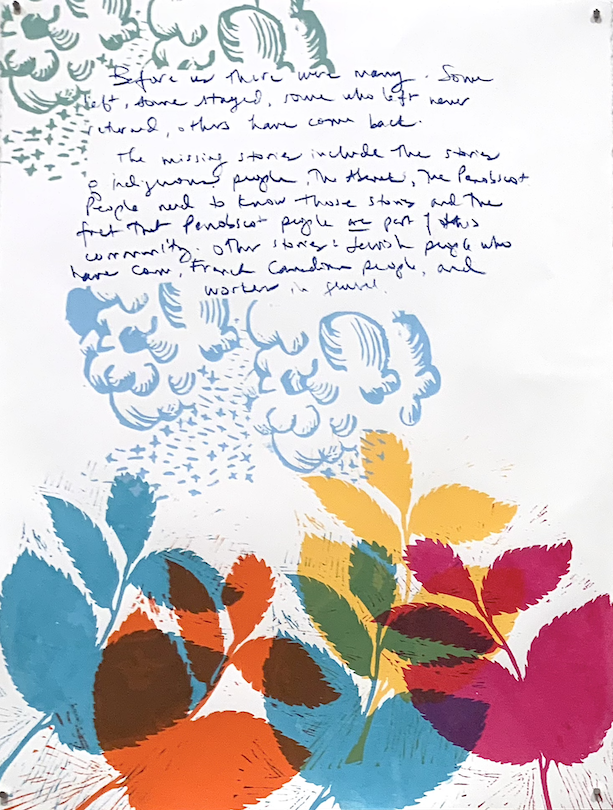 Before us there were many. Some
left, some stayed, some who left never
returned, others have come back.
The missing stories include the stories
o indigenous people, The Abenaki, The Penobscot
People need to know those stories and the
fact that Penobscot people are part of this
community. Other stories: Jewish people who
have come, French Canadian people, and
workers in general.